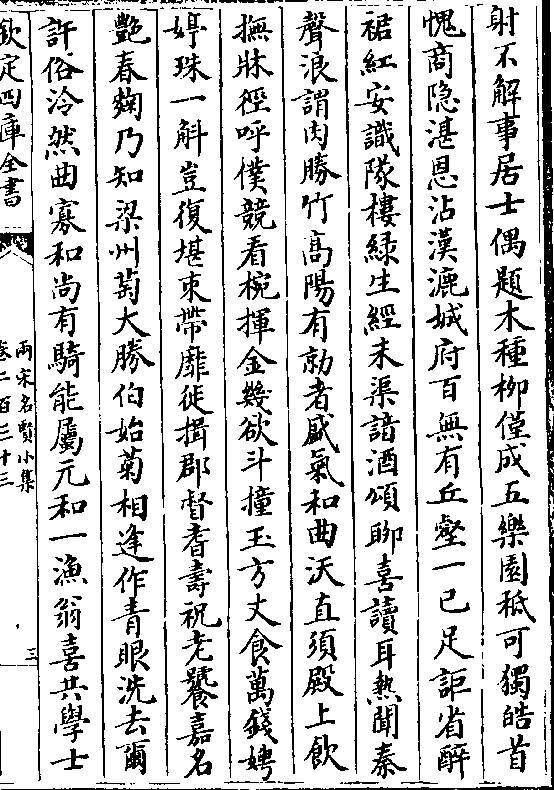 射不解事居士偶題木種栁僅成五樂園秪可獨皓首
愧商隐湛恩沾漢漉娍府百無有丘壑一已足詎省醉
裙紅安識隊樓緑生經未渠諳酒頌聊喜讀耳熱聞秦
聲浪謂肉勝竹髙陽有勍者盛氣和曲沃直須殿上飲
撫牀徑呼僕競看椀揮金幾欲斗撞玉方丈食萬錢娉
婷珠一斛豈復堪束帶靡徙揖郡督耆壽祝老饕嘉名
艷春麴乃知梁州萄大勝伯始菊相逢作青眼洗去爾
許俗泠然曲寡和尚有騎能屬元和一漁翁喜共學士
欽定四庫全書
兩宋名賢小集
卷二百三十三
三